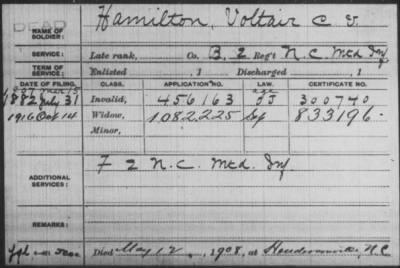 DEAD
NAME OF SOLDIER: Hamilton, Voltair C V.
SERVICE: Late rank, Co. B, 2 Reg't N.C. Mtd Inf
TERM OF SERVICE: Enlisted , 1 Discharged , 1
DATE OF FILING. CLASS. APPLICATION NO. LAW. CERTIFICATE NO.
1887 Mch 15 age
1882 July 31 Invalid, 456163 JJ 300740
1916 Oct 14 Widow, 1082225 833196.
Minor,
ADDITIONAL SERVICES: F 2 N.C. Mtd. Inf
REMARKS:
Died May 12, 1908, at Hendersonville, N.C